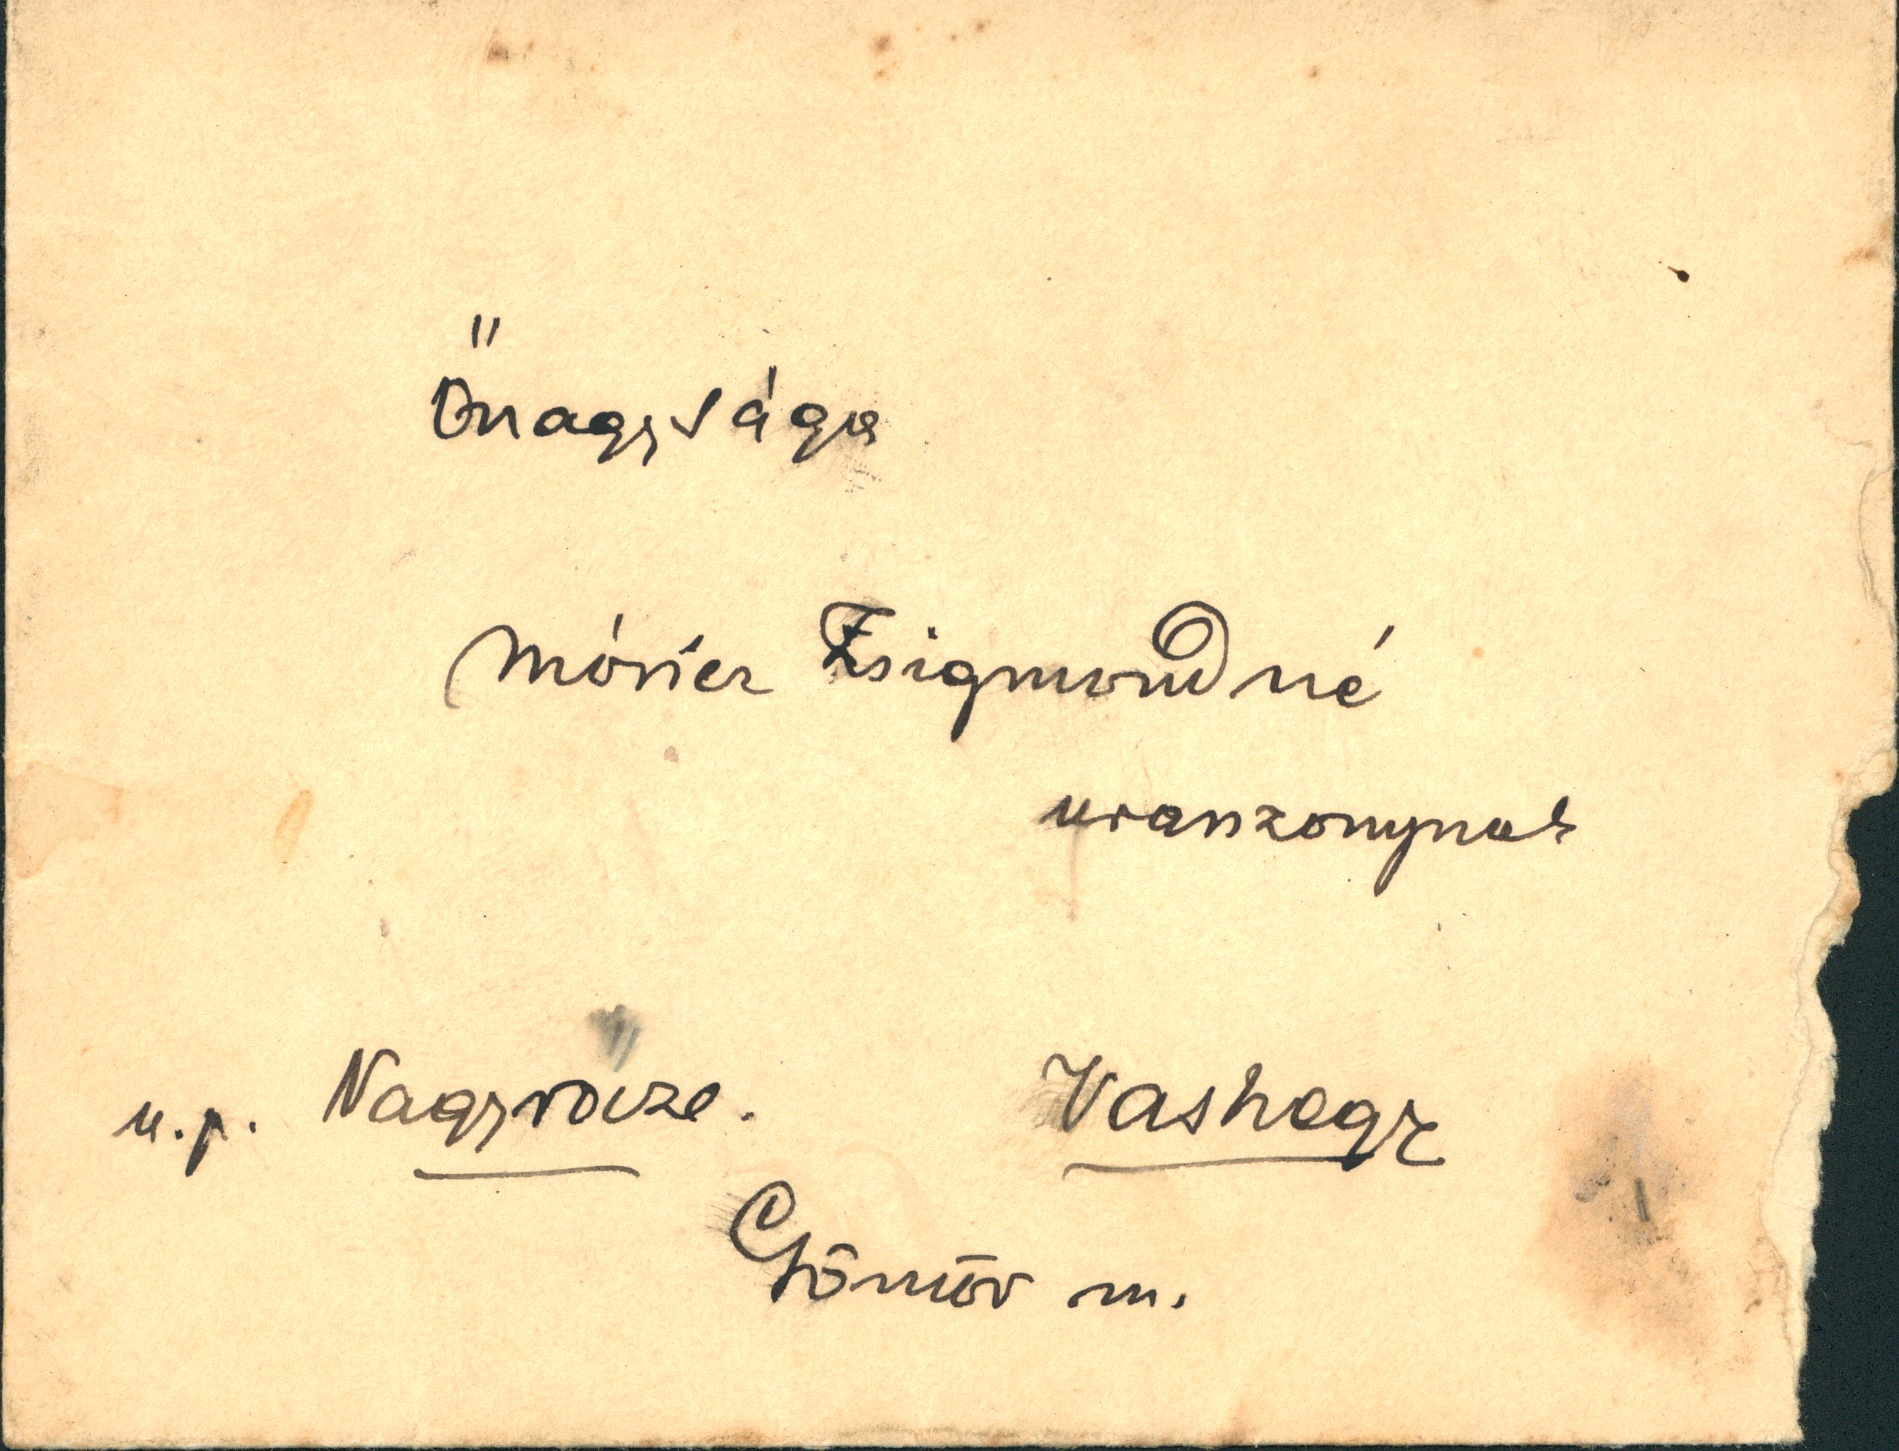 Őnagysága
Móricz Zsigmondné
uraszonynak
u. p. Nagyrőcze. Vashegy
Gömör m.